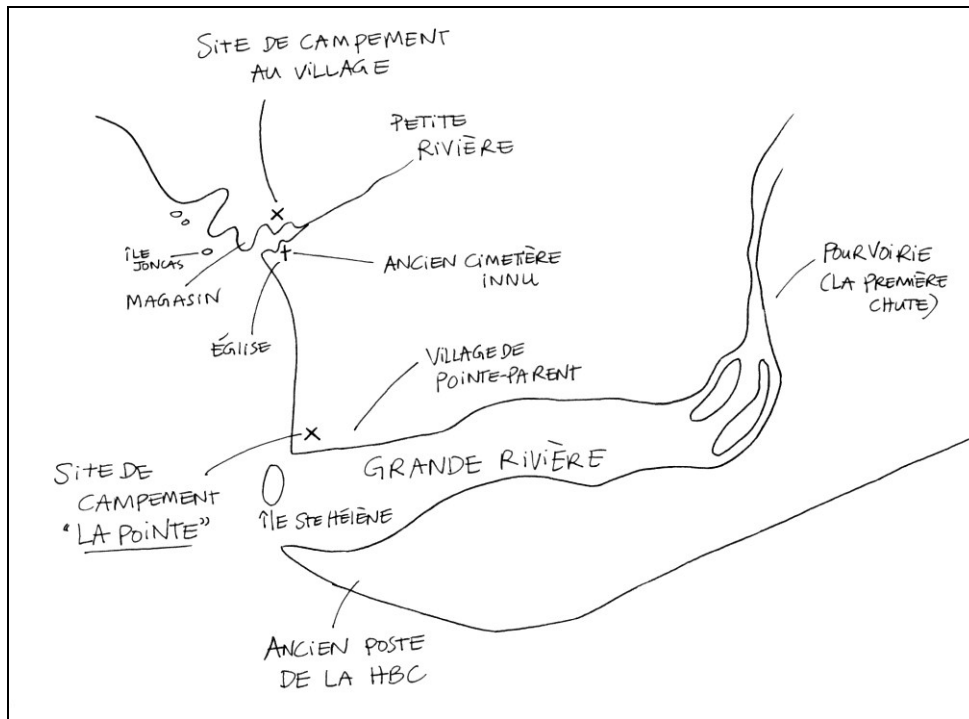 SITE DE CAMPEMENT
AU VILLAGE
PETITE
RIVIÈRE
ÎLE
JONCAS
MAGASIN
ÉGLISE
ANCIEN CIMETIÈRE
INNU
POURVOIRIE
(LA PREMIÈRE
CHUTE)
VILLAGE DE
POINTE-PARENT
SITE DE
CAMPEMENT
"LA POINTE"
GRANDE RIVIÈRE
ÎLE STE HÉLÈNE
ANCIEN POSTE
DE LA HBC